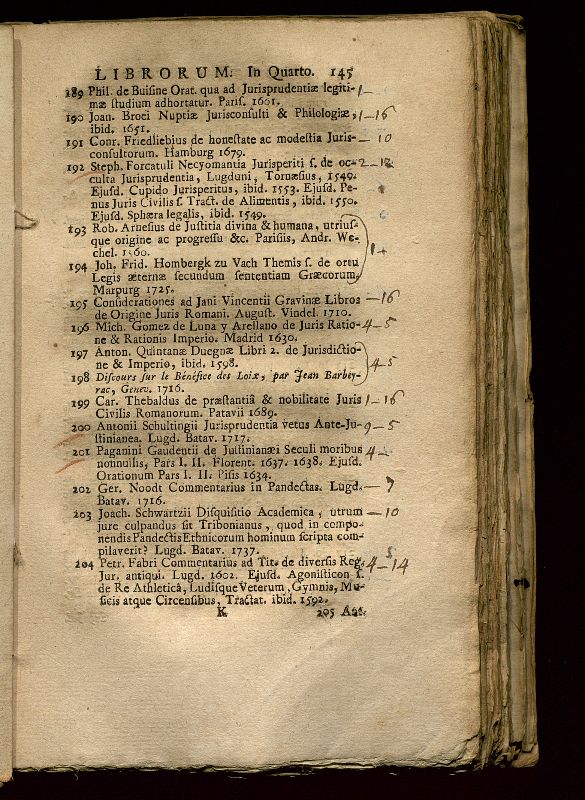 LIBRORUM. In Quarto. 145
189 Phil. de Buisine Orat. qua ad Jurisprudentiæ legiti- 1 —
mæ studium adhortatur. Paris. 1601.
190 Joan. Broei Nuptiæ Jurisconsulti & Philologiæ, 1 — 16
ibid. 1651.
191 Conr. Friedliebius de honestate ac modestia Juris- — 10
consultorum. Hamburg 1679.
192 Steph. Forcatuli Necyomantia Jurisperiti s. de oc- 2 — 12
culta Jurisprudentia, Lugduni, Tornæsius, 1549.
Ejusd. Cupido Jurisperitus, ibid. 1553. Ejusd. Pe-
nus Juris Civilis s. Tract. de Alimentis, ibid. 1550.
Ejusd. Sphæra legalis, ibid. 1549.
193 Rob. Arnesius de Justitia divina & humana, utrius-
que origine ac progressu &c. Parisiis, Andr. We-
chel. 1560.
1 —
194 Joh. Frid. Hombergk zu Vach Themis s. de ortu
Legis æternæ secundum sententiam Græcorum,
Marpurg 1725.
195 Considerationes ad Jani Vincentii Gravinæ Libros — 16
de Origine Juris Romani. August. Vindel. 1710.
196 Mich. Gomez de Luna y Arellano de Juris Ratio- 4 — 5
ne & Rationis Imperio. Madrid 1630.
197 Anton. Quintanæ Duegnæ Libri 2. de Jurisdictio-
ne & Imperio, ibid. 1598. 4 — 5
198 Discours sur le Bénéfice des Loix, par Jean Barbey-
rac, Genev. 1716.
199 Car. Thebaldus de præstantiâ & nobilitate Juris 1 — 16
Civilis Romanorum. Patavii 1689.
200 Antonii Schultingii Jurisprudentia vetus Ante-Ju- 9 — 5
stinianea. Lugd. Batav. 1717.
201 Paganini Gaudentii de Justinianæi Seculi moribus 4 —
nonnullis, Pars I. II. Florent. 1637. 1638. Ejusd.
Orationum Pars I. II. Pisis 1634.
202 Ger. Noodt Commentarius in Pandectas. Lugd. — 7
Batav. 1716.
203 Joach. Schwartzii Disquisitio Academica, utrum — 10
jure culpandus sit Tribonianus, quod in compo-
nendis Pandectis Ethnicorum hominum scripta com-
pilaverit? Lugd. Batav. 1737.
204 Petr. Fabri Commentarius ad Tit. de diversis Reg. 4 — 14
Jur. antiqui. Lugd. 1602. Ejusd. Agonisticon s.
de Re Athleticâ, Ludisque Veterum, Gymnis, Mu-
sicis atque Circensibus, Tractat. ibid. 1592.
K 205 Ant.